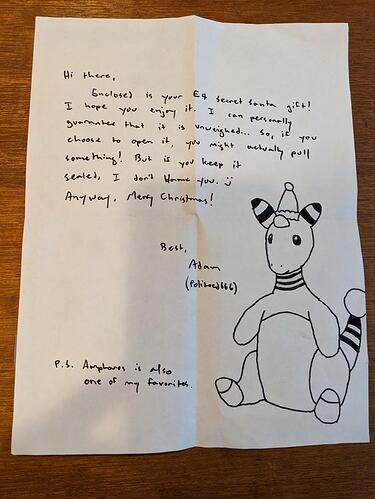 Hi there,
Enclosed is your E4 secret santa gift!
I hope you enjoy it. I can personally
guarantee that it is unweighed... So, if you
choose to open it, you might actually pull
something! But if you keep it
sealed, I don't blame you. :)
Anyway, Merry Christmas!
Best,
Adam
(Politoed666)
P.S. Ampharos is also
one of my favorites.